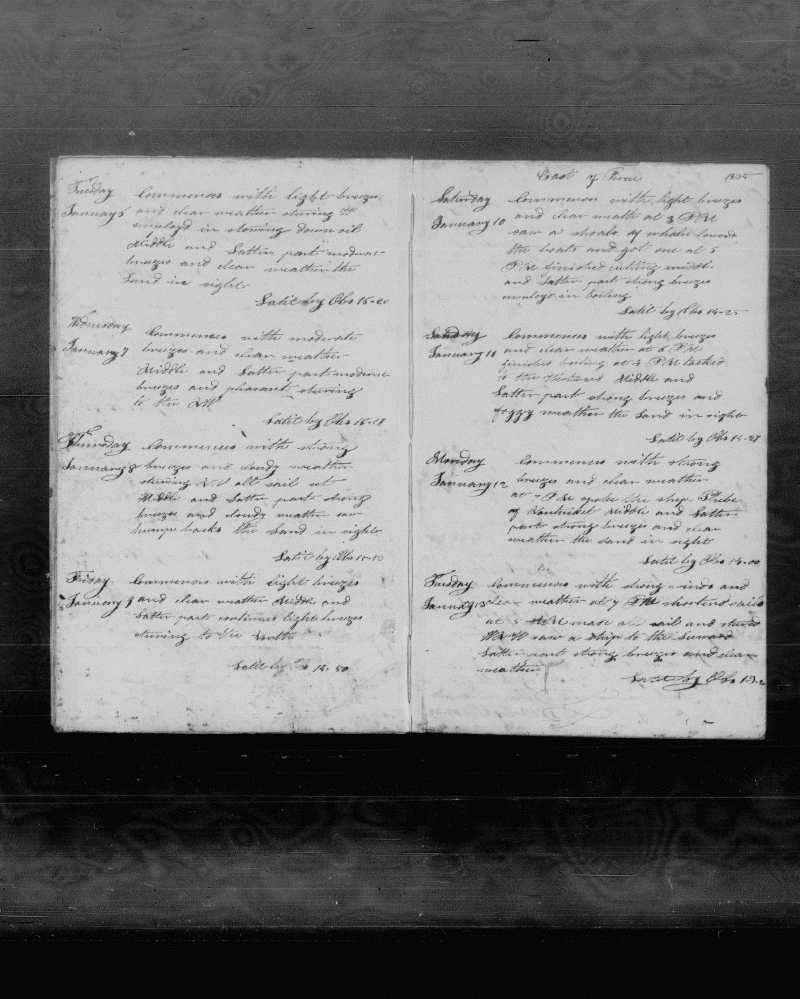 Tuesday Commences with light breezes
January 6 and clear weather stering W
employd in stowing down oil
Middle and Latter part moderate
breezes and clear weather the
Land in sight
Latit by Obs 15-20
Wednesday Commences with moderate
January 7 breezes and clear weather
Middle and Latter part moderate
breezes and pleasant stering
to the NW
Latit by Obs 15-18
Thursday Commences with strong
January 8 breezes and cloudy weather
stering all sail set
Middle and Latter part strong
breezes and cloudy weather saw
hump backs the Land in sight
Latit by Obs
Friday Commences with light breezes
January 9 and clear weather Middle and
Latter part continues light breezes
stering to the
Latit by Obs 14-50
Coast of Perue 1835
Saturday Commences with light breezes
January 10 and clear weath at 3 PM
saw a shoale of whales lowerd
the boats and got one at 5
PM finished cutting middle
and Latter part strong breezes
employd in boiling
Latit by Obs 14-25
Sunday Commences with light breezes
January 11 and clear weather at 6 PM
finished boiling at 4 PM tacked
to the Middle and
Latter part strong breezes and
foggy weather the Land in sight
Latit by Obs 14-27
Monday Commences with strong
January 12 breezes and clear weather
at 7 PM spoke the ship Phebe
of Nantucket Middle and Latter
part strong breezes and clear
weather the Land in sight
Latit by Obs 14-00
Tusday Commences with strong winds and
January 13 clear weather at 7 PM shortend sail
at 5 AM made all sail and sterd
WNW saw a ship to the Leeward
Latter part strong breezes and clear
weather
Latit by Obs